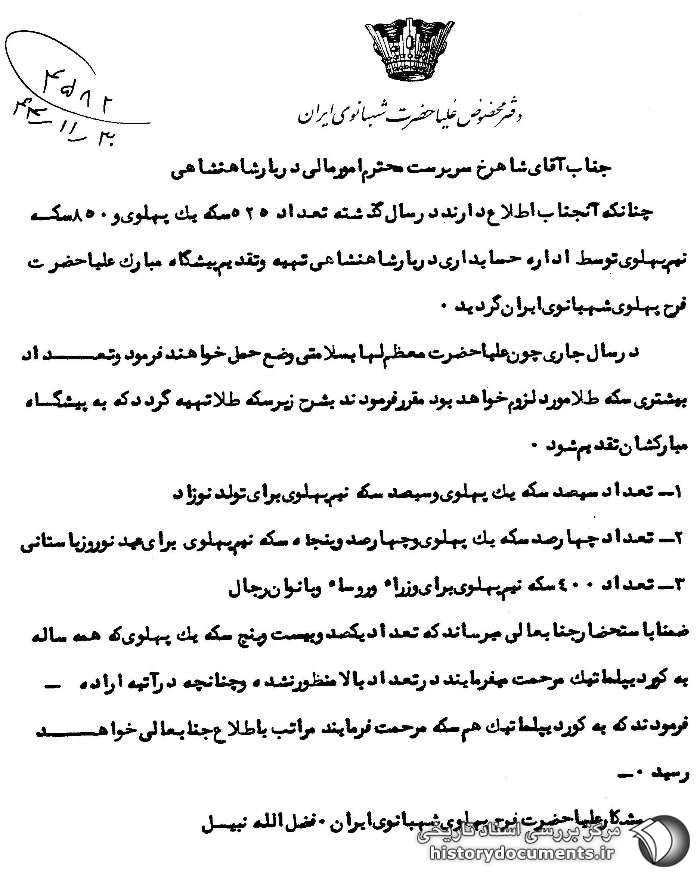 ۴۵۸۲
۴۴-۱۱-۳۰
دفتر مخصوص علیاحضرت شهبانوی ایران
جناب آقای شاهرخ سرپرست محترم امور مالی دربار شاهنشاهی
چنانکه آنجناب اطلاع دارند در سال گذشته تعداد ۵۲۵ سکه یك پهلوی و ۸۵۰ سکه
نیم پهلوی توسط اداره حسابداری دربار شاهنشاهی تهیه و تقدیم پیشگاه مبارك علیاحضرت
فرح پهلوی شهبانوی ایران گردید ۰
در سال جاری چون علیاحضرت معظم لها بسلامتی وضع حمل خواهند فرمود و تعداد
بیشتری سکه طلا مورد لزوم خواهد بود مقرر فرمودند بشرح زیر سکه طلا تهیه گردد که به پیشگاه
مبارکشان تقدیم شود ۰
۱ـ تعداد سیصد سکه یك پهلوی و سیصد سکه نیم پهلوی برای تولد نوزاد
۲ـ تعداد چهارصد سکه یك پهلوی و چهارصد و پنجاه سکه نیم پهلوی برای عید نوروز باستانی
۳ـ تعداد ۴۰۰ سکه نیم پهلوی برای وزراء و روساء و بانوان رجال
ضمنا باستحضار جنابعالی میرساند که تعداد یکصد و بیست و پنج سکه یك پهلوی که همه ساله
به کوردیپلماتیك مرحمت میفرمایند در تعداد بالا منظور نشده و چنانچه در آتیه اراده ـ
فرمودند که به کوردیپلماتیك هم سکه مرحمت فرمایند مراتب باطلاع جنابعالی خواهد
رسید ۰ـ
پیشکار علیاحضرت فرح پهلوی شهبانوی ایران ۰ فضل الله نبیل
مرکز بررسی اسناد تاریخی
historydocuments.ir